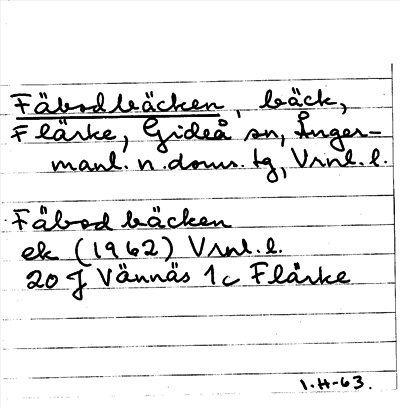 Fäbodbäcken, bäck,
Flärke, Gideå sn, Ånger-
manl. n. doms. tg, Vrnl. l.
Fäbodbäcken
ek (1962) Vrnl. l.
20 J Vännäs 1c Flärke
I.H-63.